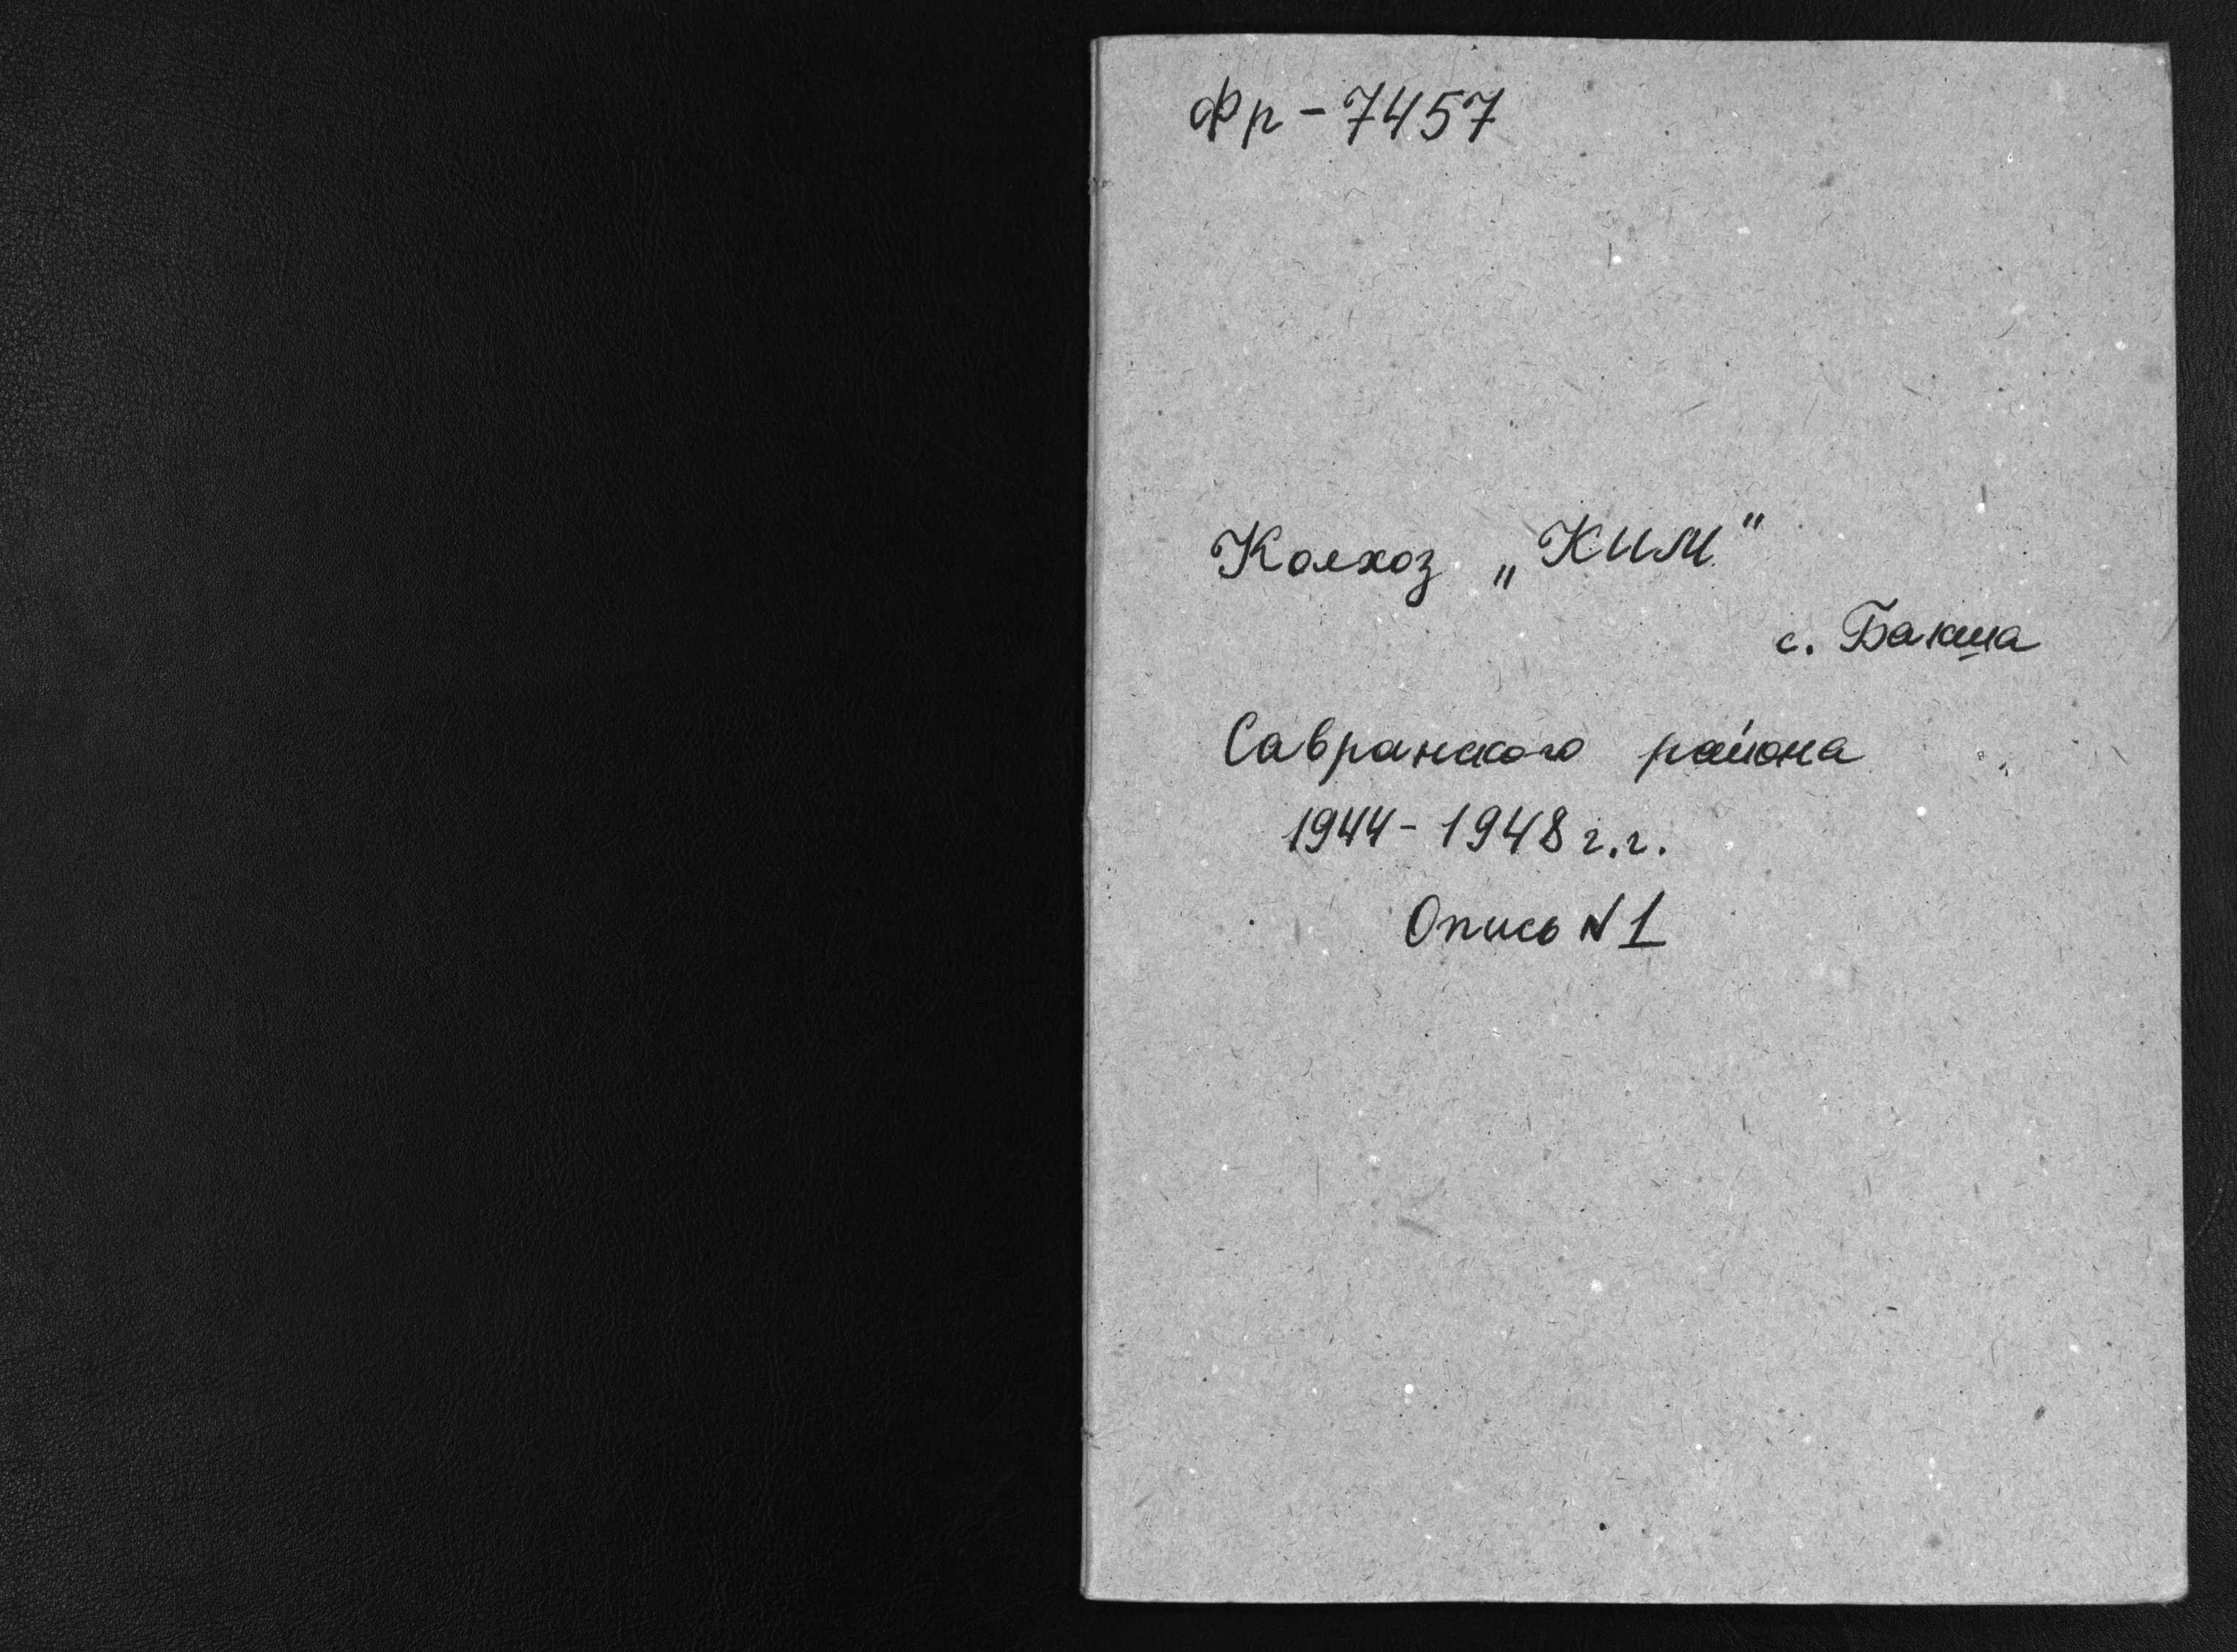 Фр-7457
Колхоз „КИМ"
с. Бакша
Савранского района
1944-1948 г.г.
Опись N1